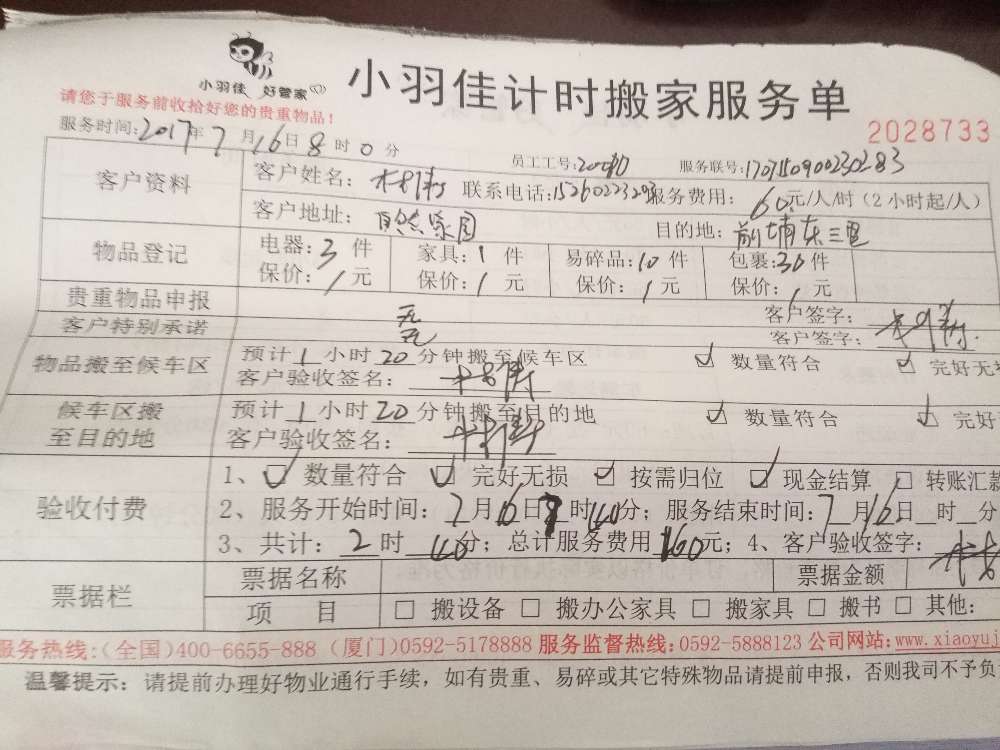 小羽佳 好管家
小羽佳计时搬家服务单
请您于服务前收拾好您的贵重物品!
2028733
服务时间:2017年7月16日8时0分
员工工号: 服务联号:1707150900230283
客户资料
客户姓名: 联系电话:15260223293服务费用:60元/人/时(2小时起/人)
客户地址:自然家园 目的地:前埔东三里
物品登记
电器:3件 家具:1件 易碎品:10件 包裹:30件
保价:1元 保价:1元 保价:1元 保价:1元
贵重物品申报 无 客户签字:
客户特别承诺 无 客户签字:
物品搬至候车区
预计1小时20分钟搬至候车区 ☑ 数量符合 ☑ 完好无
客户验收签名:
候车区搬至目的地
预计1小时20分钟搬至目的地 ☑ 数量符合 ☑ 完好
客户验收签名:
验收付费
1、☑ 数量符合 ☑ 完好无损 ☑ 按需归位 ☑ 现金结算 □ 转账汇款
2、服务开始时间:7月16日 时40分;服务结束时间:7月16日 时 分
3、共计:2时40分;总计服务费用160元;4、客户验收签字:
票据栏
票据名称 票据金额
项 目 □ 搬设备 □ 搬办公家具 □ 搬家具 □ 搬书 □ 其他:
服务热线:(全国)400-6655-888 (厦门)0592-5178888 服务监督热线:0592-5888123 公司网站:www.xiaoyuj
温馨提示:请提前办理好物业通行手续,如有贵重、易碎或其它特殊物品请提前申报,否则我司不予负